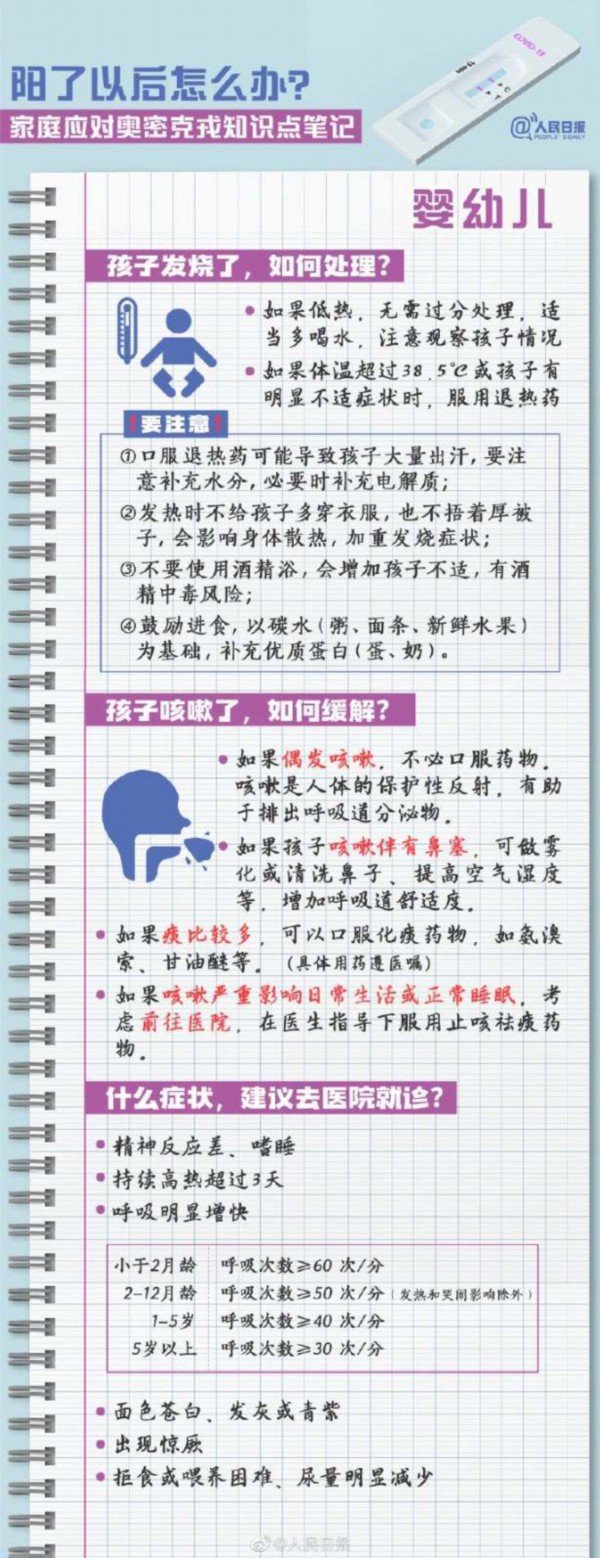 阳了以后怎么办?
家庭应对奥密克戎知识点笔记
COVID-19
C
T
@人民日报
PEOPLE'S DAILY
婴幼儿
孩子发烧了，如何处理?
•如果低热，无需过分处理，适
当多喝水，注意观察孩子情况
•如果体温超过38.5℃或孩子有
明显不适症状时，服用退热药
!要注意!
①口服退热药可能导致孩子大量出汗，要注
意补充水分，必要时补充电解质；
②发热时不给孩子多穿衣服，也不捂着厚被
子，会影响身体散热，加重发烧症状；
③不要使用酒精浴，会增加孩子不适，有酒
精中毒风险；
④鼓励进食，以碳水（粥、面条、新鲜水果）
为基础，补充优质蛋白（蛋、奶）。
孩子咳嗽了，如何缓解?
•如果偶发咳嗽，不必口服药物。
咳嗽是人体的保护性反射，有助
于排出呼吸道分泌物。
•如果孩子咳嗽伴有鼻塞，可做雾
化或清洗鼻子、提高空气湿度
等，增加呼吸道舒适度。
•如果痰比较多，可以口服化痰药物，如氨溴
索、甘油醚等。（具体用药遵医嘱）
•如果咳嗽严重影响日常生活或正常睡眠，考
虑前往医院，在医生指导下服用止咳祛痰药
物。
什么症状，建议去医院就诊?
•精神反应差、嗜睡
•持续高热超过3天
•呼吸明显增快
小于2月龄 呼吸次数≥60 次/分
2-12月龄 呼吸次数≥50 次/分（发热和哭闹影响除外）
1-5岁 呼吸次数≥40 次/分
5岁以上 呼吸次数≥30 次/分
•面色苍白、发灰或青紫
•出现惊厥
•拒食或喂养困难、尿量明显减少
@人民日报